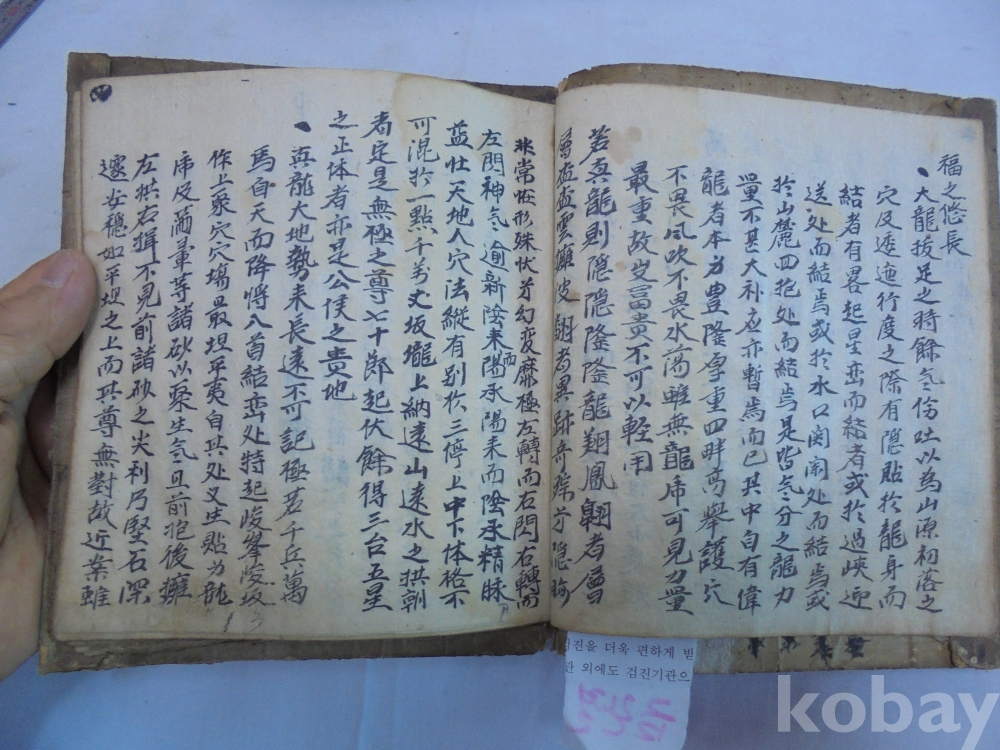 福之悠長
大龍拔足之時餘气傍吐以爲山源初落之
穴及逶迤行度之際有隱貼於龍身而
結者有畧起星峦而結者或於過峡迎
送処而結焉或於水口関闌处而結焉或
於山麓四抱处而結焉是皆气分之龍力
量不甚大补应亦暫焉而已其中自有偉
龍者本为豊隆厚重四畔高举護穴
不畏風吹不畏水蕩雖無龍虎可見力量
最重故发冨貴不可以輕用
若真龍則隱隱隆隆龍翔鳳翶者會
雲擁
非常恠形殊狀 幻変靡極左轉而右閃右轉而
左閃神气 逾新陰来而陽承陽来而陰承精脉
益壮天地人穴法縱有别於三停上中下体格不
可混於一點千萬丈坂壠上納遠山遠水之拱朝
者定是無極之尊七十節起伏餘得三台五星
之正体者亦是公侯之貴地
真龍大地勢来長遠不可記極若千兵萬
馬自天而降将入首結峦处特起峻峯陵坂
作上聚穴穴場最坦平夷自其处又生貼为龍
虎及 等諸砂以聚生气且前抱後擁
左拱右揖不見前諸砂之尖利乃堅石深
邃安穩如平坦之上而其尊無對故近案雖
검진을 더욱 편하게 받
관 외에도 검진기관으
kobay